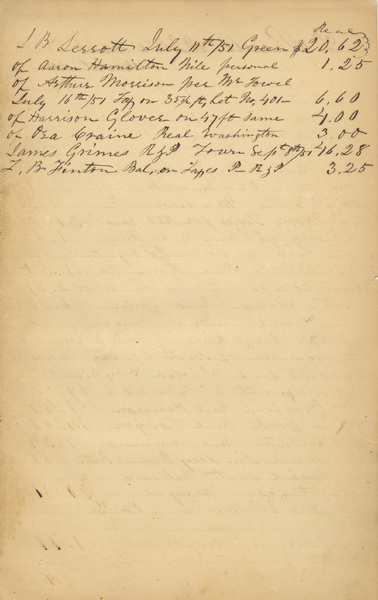 Real
J B Lerrott July 11th/51 Green $20,62½
of Aaron Hamilton Nile personal 1.25
of Arthur Morrison per Mr Fowel
July 16th/51 Tax on 35 ft, Lot No. 401 6,60
of Harrison Glover on 47 ft same 4,00
of Ora Craine Real Washington 3.00
James Grimes R&P Town Sept 8th/51 16,28
L. B. Finton Bal, on Taxes P R&P 3.25